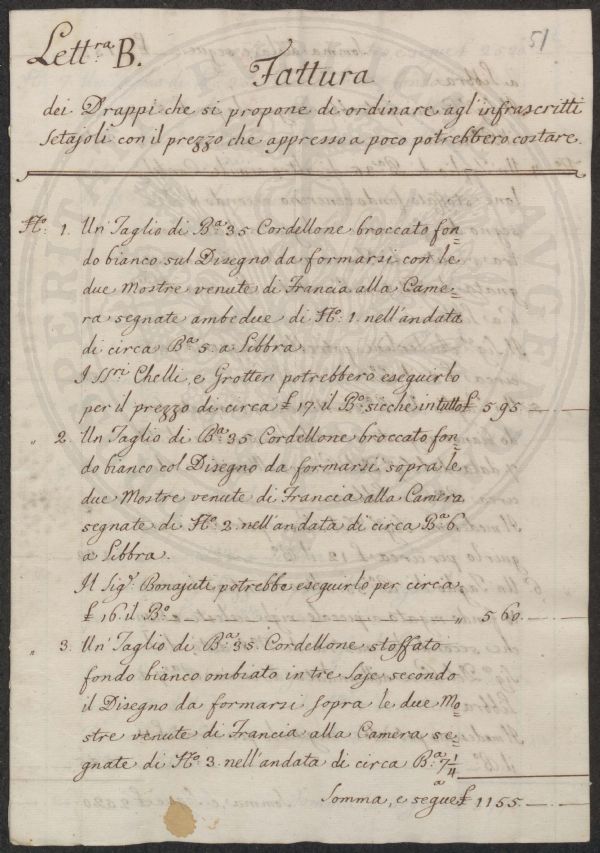 51
Lett.ra B.
Fattura
dei Drappi che si propone di ordinare agl'infrascritti
Setajoli con il prezzo che appresso a poco potrebbero costare.
N.o 1. Un Taglio di B.a 35 Cordellone broccato fon=
do bianco sul Disegno da formarsi con le
due Mostre venute di Francia alla Came=
ra segnate ambedue di N.o 1. nell'andata
di circa B.a 5. a Libbra.
I SS.ri Chelli, e Grotten potrebbero eseguirlo
per il prezzo di circa £ 17 il B.o sicche in tutto £ 595 _._
" 2. Un Taglio di B.a 35 Cordellone broccato fon=
do bianco col Disegno da formarsi sopra le
due Mostre venute di Francia alla Camera
segnate di N.o 2. nell'andata di circa B.a 6.
a Libbra.
Il Sig.r Bonajuti potrebbe eseguirlo per circa
£ 16. il B.o _ _ _ " 560. _._
" 3. Un Taglio di B.a 35. Cordellone stoffato
fondo bianco ombiato in tre Saje secondo
il Disegno da formarsi sopra le due Mo=
stre venute di Francia alla Camera se=
gnate di N.o 3. nell'andata di circa B.a 7 1/4
a
Somma, e segue £ 1155 _._